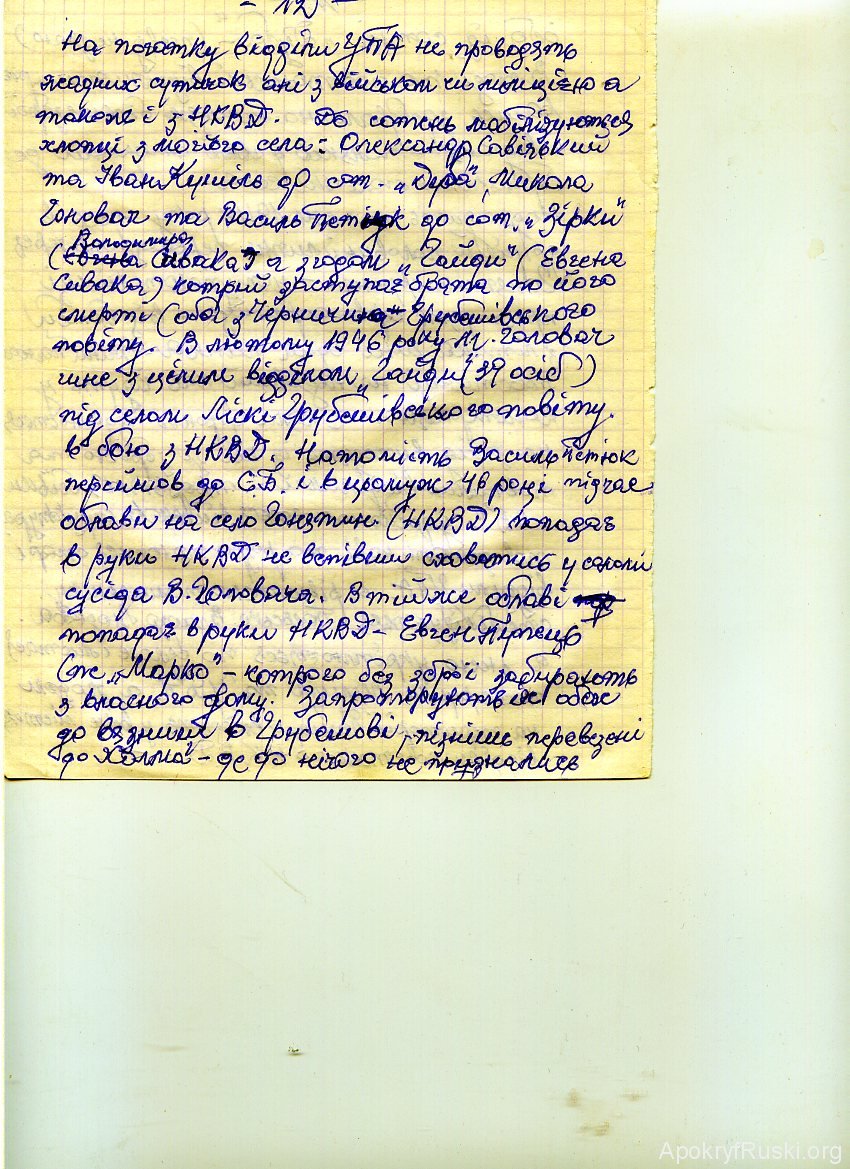 - 12 -
На початку відділи УПА не проводять
жадних сутичок ані з військом чи міліцією а
також і з НКВД. До сотень мобілізуються
хлопці з мойого села: Олександр Савіцький
та Іван Кушіль до сот. „Дуба", Микола
Головач та Василь Пстюк до сот. „Зірки"
Володимира
(Євгена Сивака) а згодом „Гайди" (Євгена
Сивака) котрий заступає брата по його
смерті (оба з Черничина Грубешівського
повіту. В лютому 1946 року М. Головач
гине з цілим відділом „Гайди" (39 осіб)
під селом Ліскі Грубешівського повіту.
в бою з НКВД. Натомість Василь Пстюк
перейшов до С.Б. і в цьомуж 46 році підчас
облави на село (НКВД) попадає
в руки НКВД не вспівши сховатись у
сусіда В. Головача. В тій же облаві
попадає в руки НКВД - Євген
(пс. „Марко" - котрого без зброї забирають
з власного дому. Запроторують їх обох
до вязниці в Грубешові, пізніше перевезені
до Холма - де до нічого не признались
ApokryfRuski.org